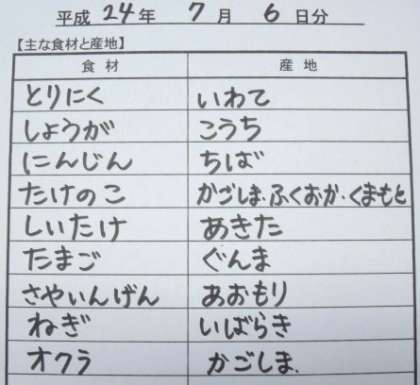 平成 24年 7月 6日分
【主な食材と産地】
食材 産地
とりにく いわて
しょうが こうち
にんじん ちば
たけのこ かごしま・ふくおか・くまもと
しいたけ あきた
たまご ぐんま
さやいんげん あおもり
ねぎ いばらき
オクラ かごしま.